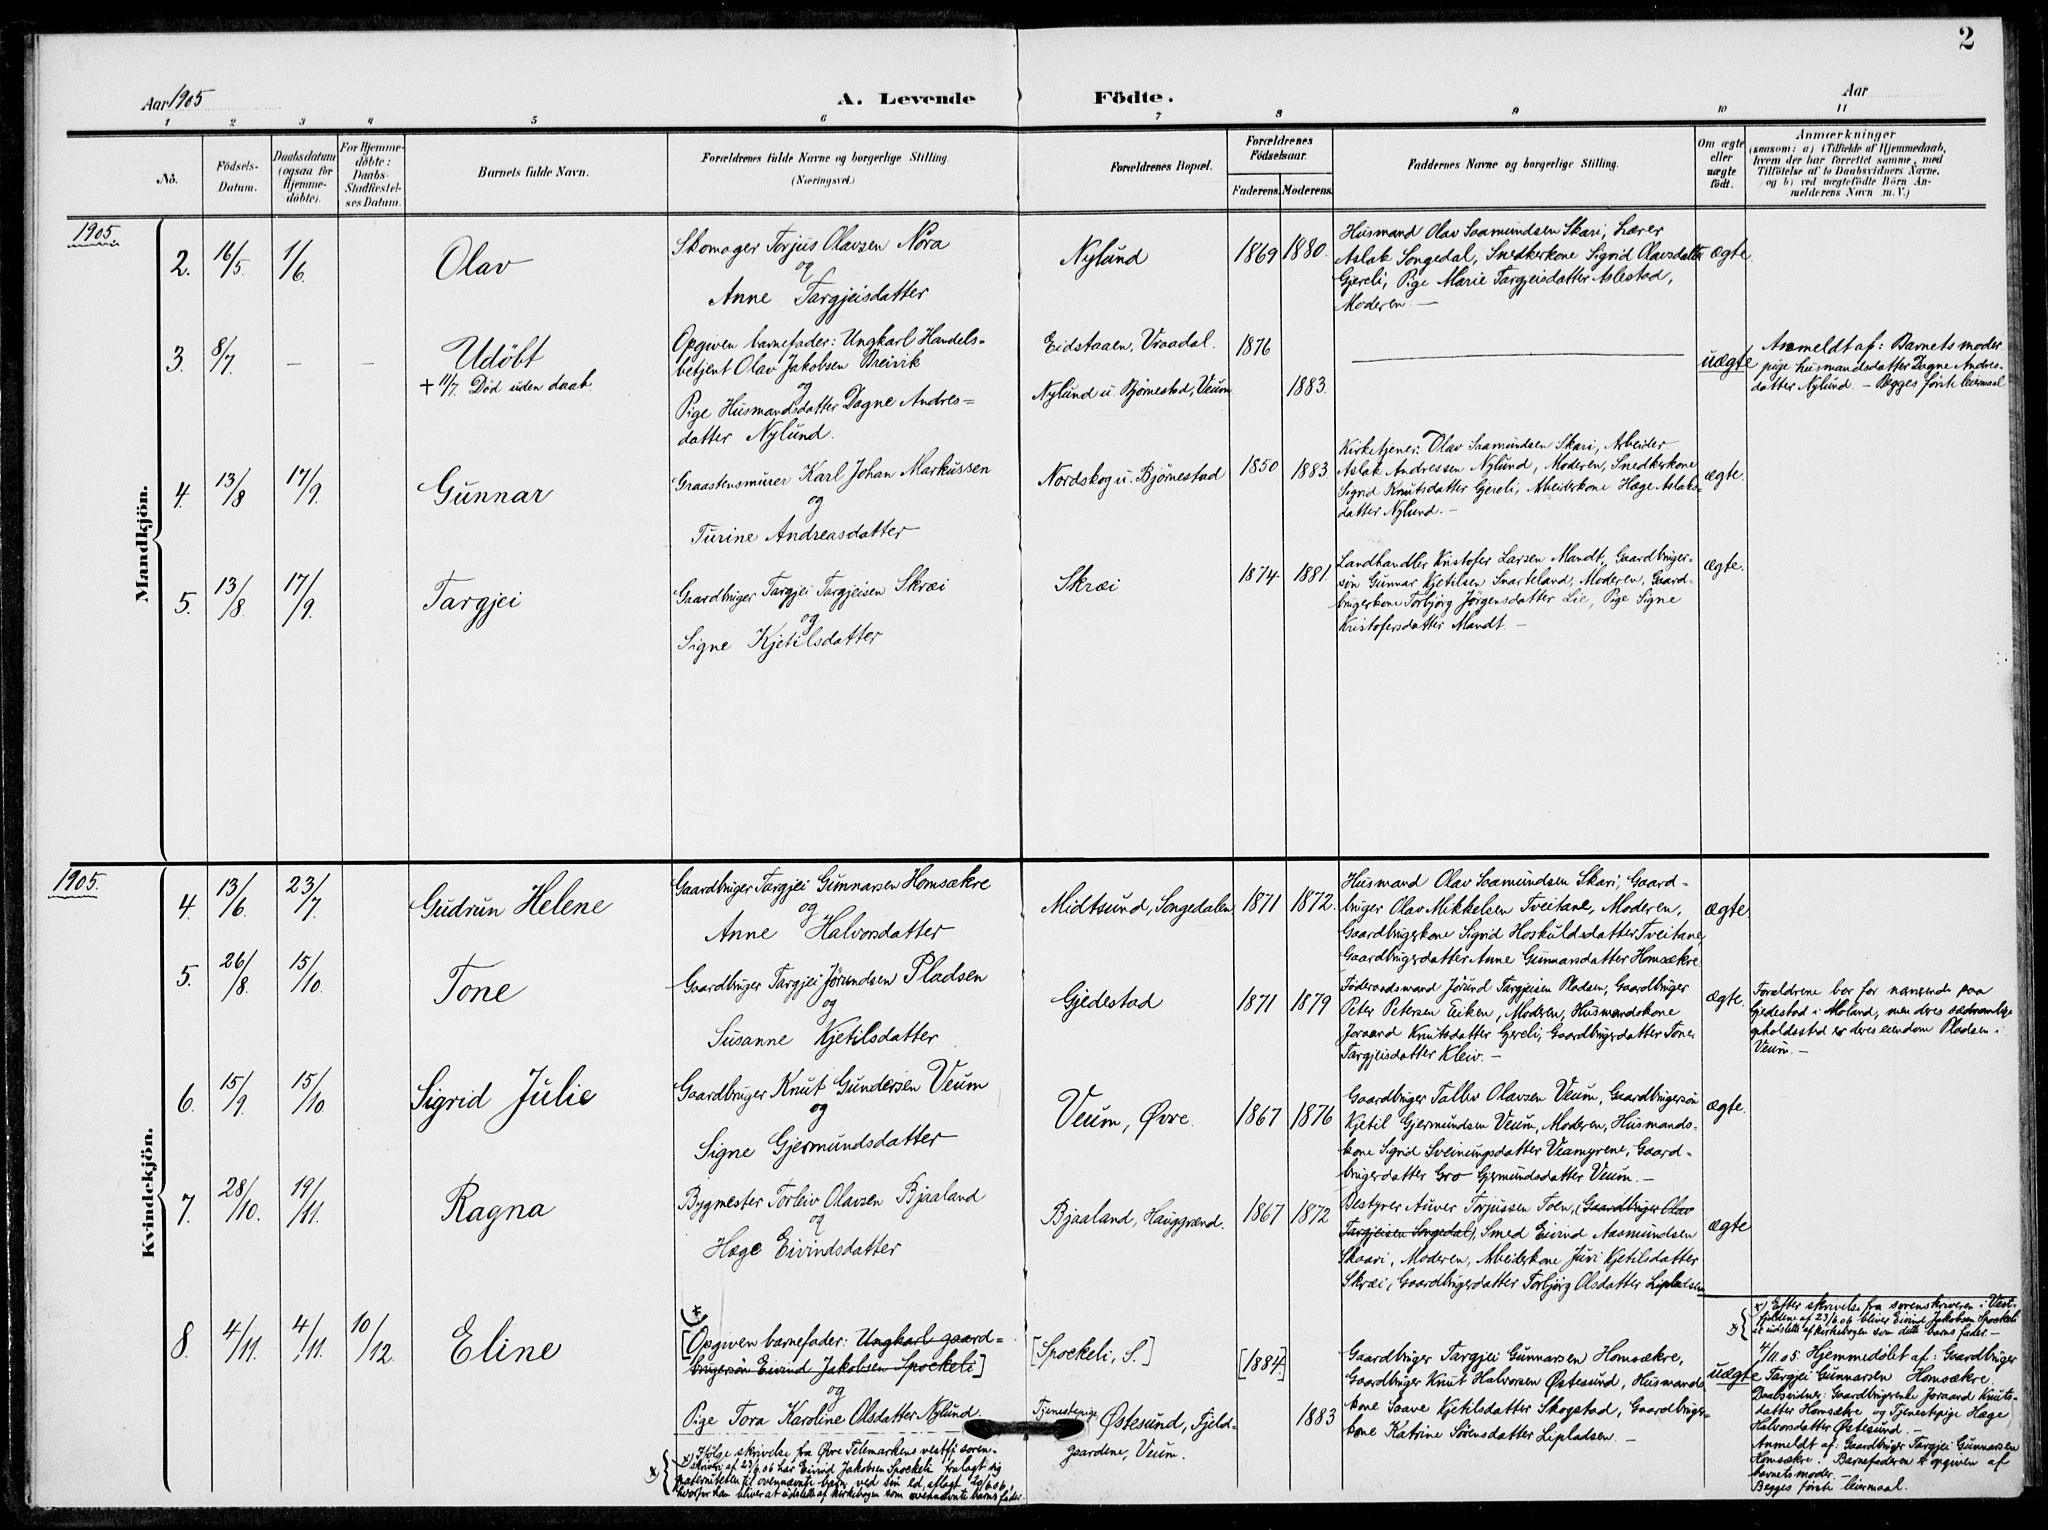 2
Aar 1905
A. Levende Födte.
Aar
1 2 3 4 5 6 7 8 9 10 11
No.
Födsels-
Datum.
Daabsdatum
(ogsaa for
Hjemme-
döbte).
For Hjemme-
döbte:
Daabs-
Stadfæstel-
ses Datum.
Barnets fulde Navn.
Forældrenes fulde Navne og borgerlige Stilling.
(Næringsvei.)
Forældrenes Bopæl.
Forældrenes
Födselsaar.
Faderens. Moderens.
Faddernes Navne og borgerlige Stilling.
Om ægte
eller
uægte
födt.
Anmærkninger
(saasom: a) i Tilfælde af Hjemmedaab,
hvem der har forrettet samme, med
Tilföielse af to Daabsvidners Navne,
og b) ved uægtefödte Börn An-
melderens Navn m.V.)
Mandkjön.
1905
2.
16/5.
1/6.
Olav
Skomager Torjus Olavsen Nora
og
Anne Targjeisdatter
Nylund
1869
1880.
Husmand Olav Saamundsen Skari, Lærer
Aslak Songedal, Snedkerkone Sigrid Olavsdatter
Gjereli, Pige Marie Targjeisdatter Aslestad,
Moderen. —
ægte.
3.
8/7.
—
—
Udöbt
+ 11/7. Död uden daab.
Opgiven barnefader: Ungkarl Handels-
betjent Olav Jakobsen Breivik
og
Pige Husmandsdatter Dagne Andres-
datter Nylund.
Eidstaaen, Vraadal.
Nylund u. Bjørnestad, Veum
1876
1883.
—
uægte
Anmeldt af: Barnets moder
pige husmandsdatter Dagne Andres-
datter Nylund. — Begges første leiermaal
4.
13/8
17/9.
Gunnar
Graastensmurer Karl Johan Markussen
og
Turine Andreasdatter
Nordskog u. Bjørnestad
1850
1883.
Kirketjener Olav Saamundsen Skari, Arbeider
Aslak Andressen Nylund, Moderen, Snedkerkone
Sigrid Knutsdatter Gjereli, Arbeiderkone Hæge Aslaks-
datter Nylund. —
ægte.
5.
13/8.
17/9.
Targjei
Gaardbruger Targjei Targjeisen Skræi
og
Signe Kjetilsdatter
Skræi
1874
1881.
Landhandler Kristofer Larsen Mandt, Gaardbruger-
søn Gunnar Kjetilsen Snarteland, Moderen, Gaard-
brugerkone Torbjørg Jørgensdatter Lie, Pige Signe
Kristofersdatter Mandt. —
ægte.
Kvindekjön.
1905.
4.
13/6.
23/7.
Gudrun Helene
Gaardbruger Targjei Gunnarsen Homsækre
og
Anne Halvorsdatter
Midtsund, Songedalen
1871
1872.
Husmand Olav Saamundsen Skari, Gaard-
bruger Olav Mikkelsen Tveitane, Moderen,
Gaardbrugerkone Sigrid Hoskuldsdatter Tveitane,
Gaardbrugerdatter Anne Gunnarsdatter Homsækre.
ægte
5.
26/8.
15/10.
Tone
Gaardbruger Targjei Jørundsen Pladsen
og
Susanne Kjetilsdatter
Gjedestad
1871
1879
Föderaadsmand Jørund Targjeisen Pladsen, Gaardbruger
Peter Petersen Eiken, Moderen, Husmandskone
Joraand Knutsdatter Gjereli, Gaardbrugerdatter Tone
Targjeisdatter Kleiv. —
ægte.
Forældrene bor for nærværende paa
Gjedestad i Moland, men deres sædvanlige
opholdssted er deres eiendom Pladsen i
Veum. —
6.
15/9.
15/10.
Sigrid Julie
Gaardbruger Knut Gundersen Veum
og
Signe Gjermundsdatter
Veum, Øvre.
1867
1876
Gaardbruger Tallev Olavsen Veum, Gaardbrugersøn
Kjetil Gjermundsen Veum, Moderen, Husmands-
kone Sigrid Sveinungsdatter Veamyrene, Gaard-
brugerdatter Gro Gjermundsdatter Veum. —
ægte.
7.
28/10.
19/11.
Ragna
Bygmester Torleiv Olavsen Bjaaland
og
Hæge Eivindsdatter
Bjaaland, Hauggrænd.
1867
1872
Bestyrer Auver Torjussen Toen, (Gaardbruger Olav
Targjeisen Songedal), Smed Eivind Aasmundsen
Skaari, Moderen, Arbeiderkone Juri Kjetilsdatter
Skræi, Gaardbrugerdatter Torbjørg Olsdatter Lipladsen
ægte
8.
4/11.
4/11.
10/12.
Eline
[Opgiven barnefader: Ungkarl gaard-
brugersøn Eivind Jakobsen Spockeli]
og
Pige Tora Karoline Olsdatter Nylund.
x) Ifølge skrivelse fra Øvre Telemarkens vestfj. soren-
skriveri af 23/6 06 har Eivind Jakobsen Spockeli fralagt sig
paterniteten til ovennævnte barn ved sin ed, aflagt 20/6 06,
hvorfor han bliver at udslette af kirkebogen som ovennævnte barns fader.
[Spockeli, S.]
Tjenestepige
Østesund, Fjeld-
gaardene, Veum.
[1884.]
1883
Gaardbruger Targjei Gunnarsen Homsækre,
Gaardbruger Knut Halvorsen Østesund, Husmands-
kone Saave Kjetilsdatter Skogstad, Gaardbruger-
kone Katrine Sørensdatter Lipladsen. —
uægte
x) Efter skrivelse fra sorenskriveren i Vest-
fjeldene af 23/6 06 bliver Eivind Jakobsen Spockeli
at udslette af kirkebogen som dette barns fader. —
4/11.05. Hjemmedøbt af: Gaardbruger
Targjei Gunnarsen Homsækre.
Daabsvidner: Gaardbrugerenke Joraand Knuts-
datter Homsækre og Tjenestepige Hæge
Halvorsdatter Østesund. —
Anmeldt af: Gaardbruger Targjei Gunnarsen
Homsækre. Barnefaderen er opgiven af
barnets moder. —
Begges første leiermaal.